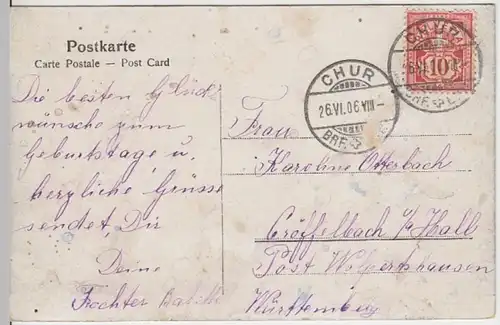 Postkarte
Carte Postale — Post Card
Die besten Glück
wünsche zum
Geburtstage u.
herzliche Grüsse
sendet, Dir
Deine
Tochter Babette
CHUR
26.VI.06.VIII-
BRF.
CHUR
10
Frau
Karoline Otterbach
Gröffelbach b/ Hall
Post Wolpertshausen
Württemberg